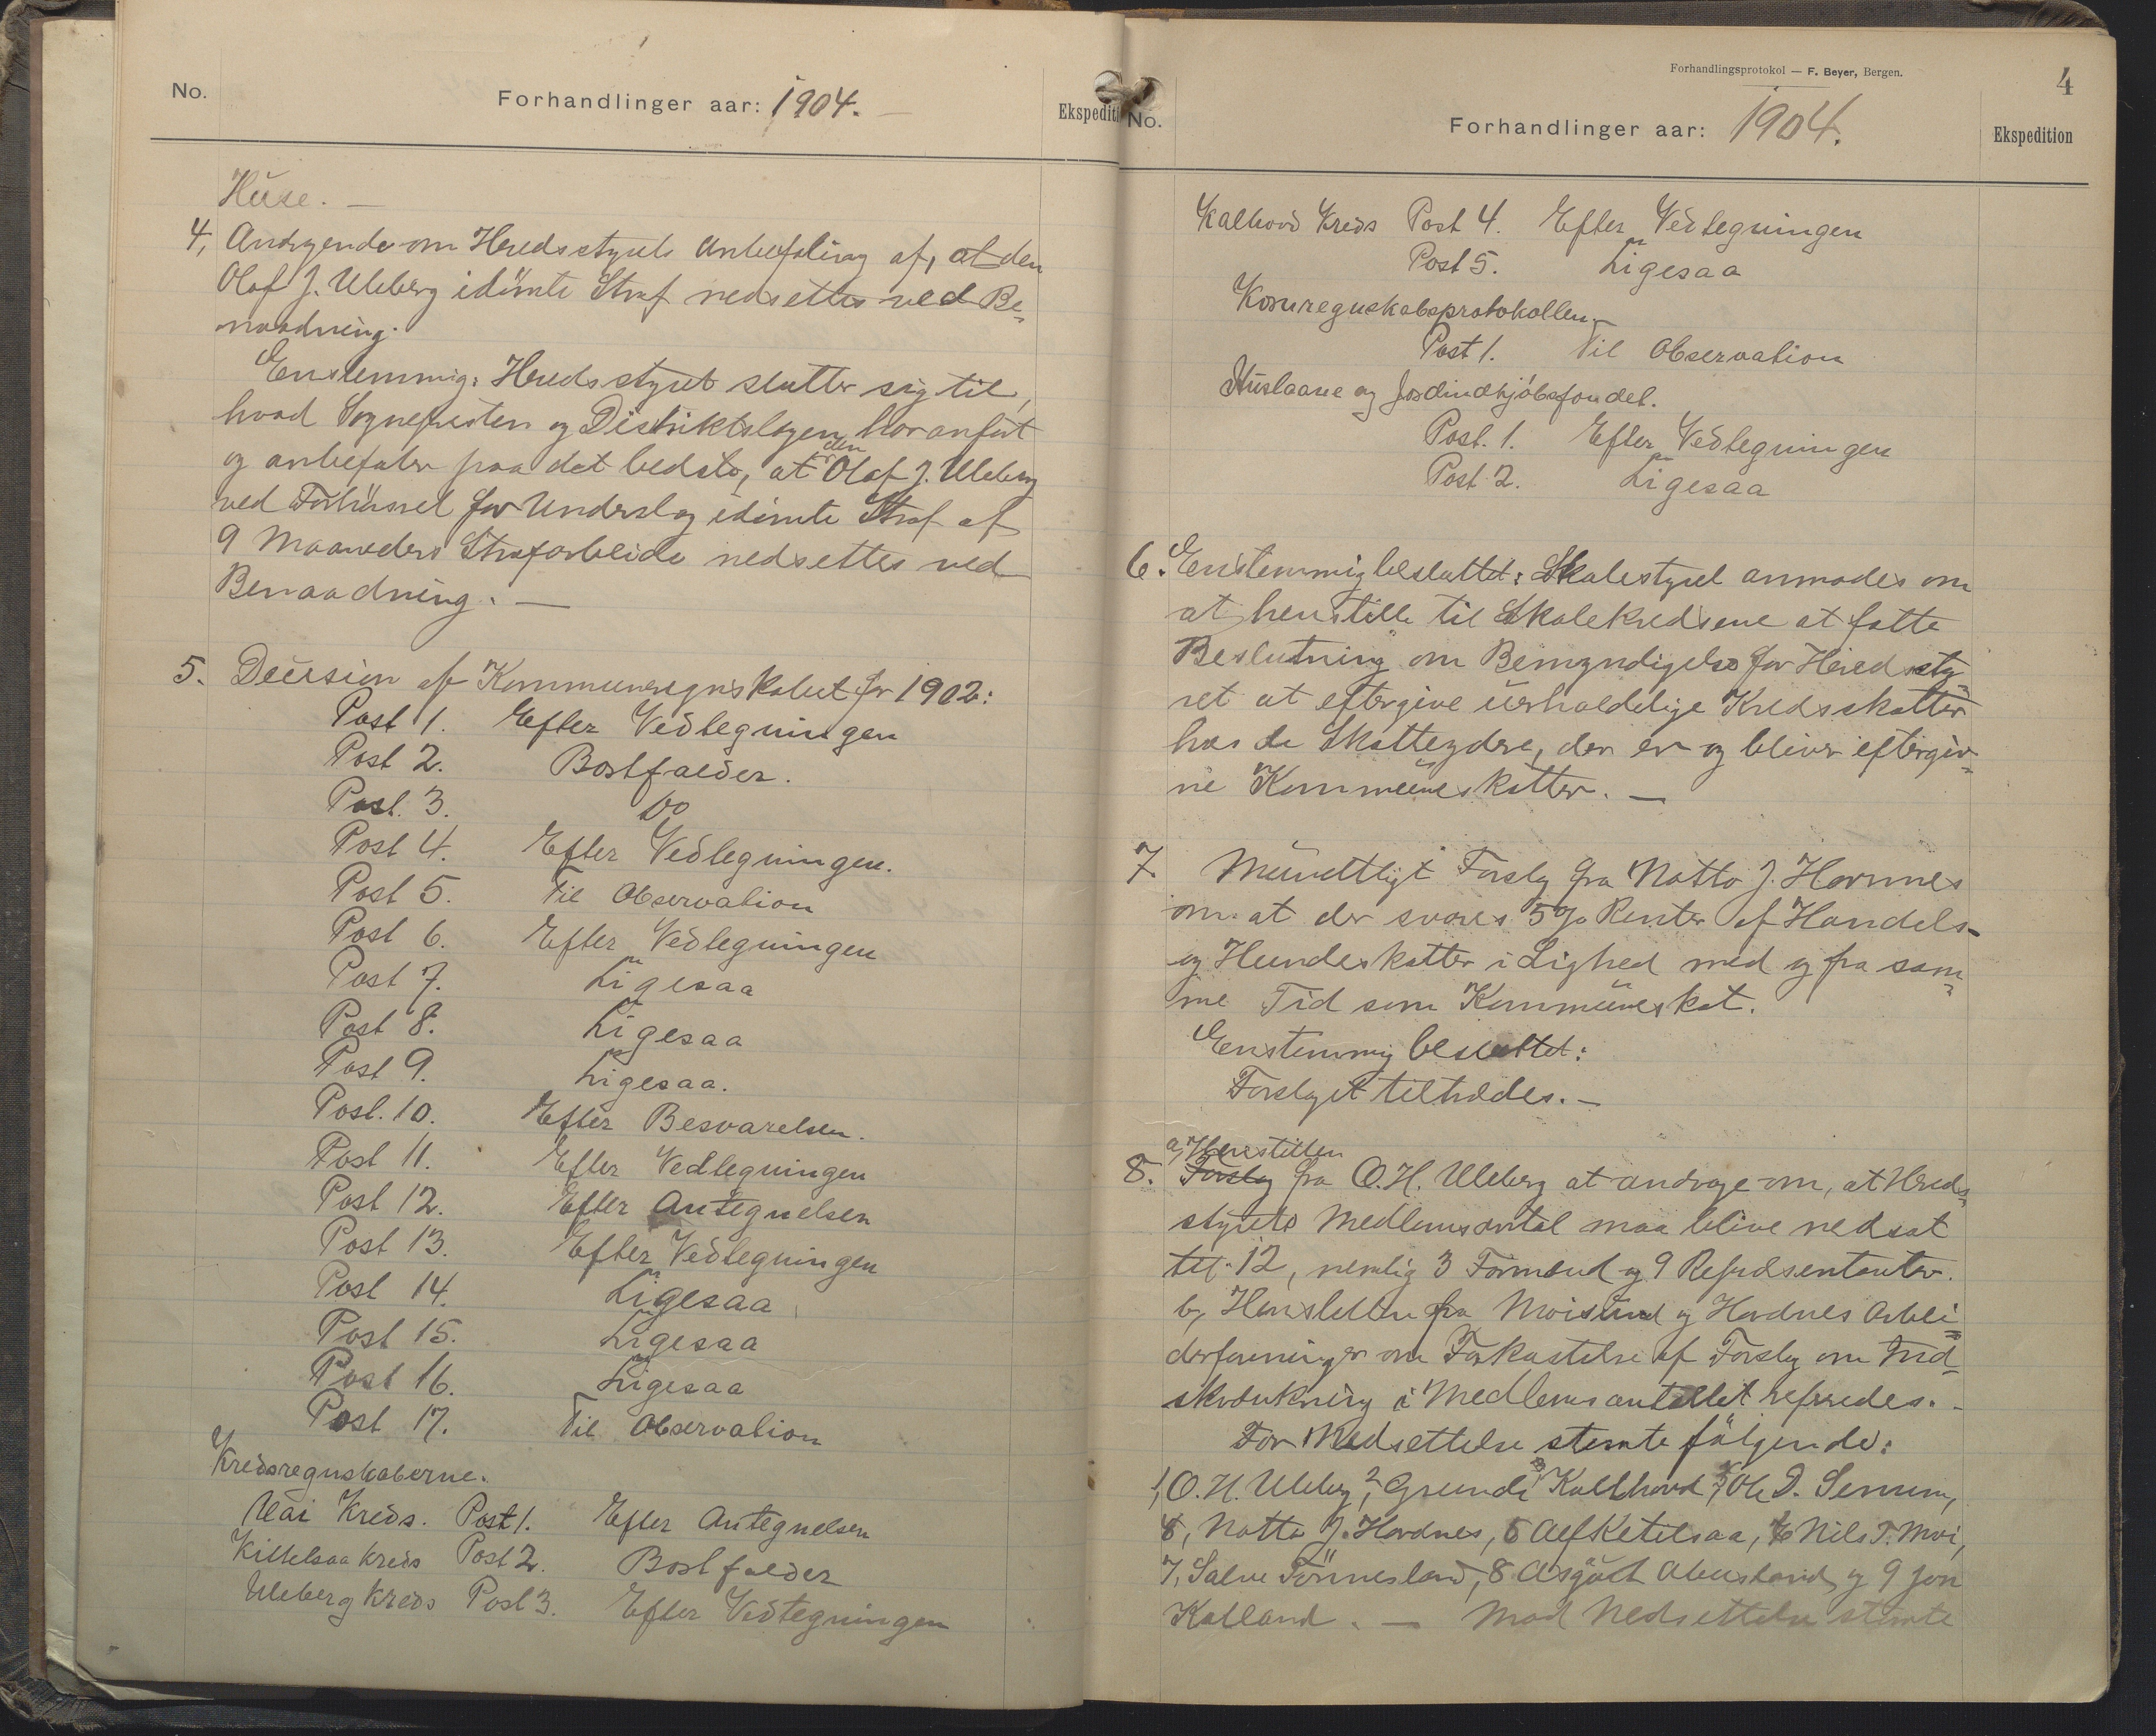 No.
Forhandlinger aar: 1904.
Ekspediti
Huse. —
4, Andragende om Heredsstyrets Anbefaling af, at den
Olaf J. Uleberg idömte Straf nedsettes ved Be-
naadning.
Enstemmig: Heredsstyret slutter sig til,
hvad Sognepresten og Distriktslægen har anført
og anbefaler paa det bedste, at den Olaf J. Uleberg
ved for Underslag idömte Straf af
9 Maaneders Strafarbeide nedsettes ved
Benaadning. —
5. Decision af Kommuneregnskabet for 1902:
Post 1. Efter Vedtegningen
Post 2. Bortfalder.
Post. 3. Do
Post 4. Efter Vedtegningen.
Post 5. Til Observation
Post 6. Efter Vedtegningen
Post 7. Ligesaa
Post 8. Ligesaa
Post 9. Ligesaa.
Post. 10. Efter Besvarelsen.
Post 11. Efter Vedtegningen
Post 12. Efter Antegnelsen
Post 13. Efter Vedtegningen
Post 14. Ligesaa
Post 15. Ligesaa
Post 16. Ligesaa
Post 17. Til Observation
Kredsregnskaberne.
Kreds. Post 1. Efter Antegnelsen
Kittelsaa Kreds Post 2. Bortfalder
Uleberg Kreds Post 3. Efter Vedtegningen
Forhandlingsprotokol — F. Beyer, Bergen.
4
No.
Forhandlinger aar: 1904.
Ekspedition
Kalhovd Kreds Post 4. Efter Vedtegningen
Post 5. Ligesaa
Kornregnskabsprotokollen. —
Post 1. Til Observation
Huslaane og Jordindkjöbsfondet.
Post. 1. Efter Vedtegningen
Post 2. Ligesaa
6. Enstemmig besluttet: Skolestyret anmodes om
at henstille til Skolekredsene at fatte
Beslutning om Bemyndigelse for Heredssty-
ret at eftergive uerholdelige Kredsskatter
hos de Skatteydere, der er og bliver eftergiv-
ne Kommuneskatter. —
7 Mundtligt Forslag fra Notto J. Hornnes
om at der svares 5% Renter af Handels-
og Hundeskatter i Lighed med og fra sam-
me Tid som Kommuneskat.
Enstemmig besluttet:
Forslaget tiltrædes. —
a, Henstillen
8. Forslag fra O. H. Uleberg at andrage om, at Hereds-
styrets Medlemsantal maa blive nedsat
til 12, nemlig 3 Formænd og 9 Repræsentanter.
b, Henstillen fra Moisund og Hordnes Arbei-
derforeninger om Forkastelse af Forslag om Ind-
skrænkning i Medlemsantallet refereredes. -
For Nedsettelse stemte fölgende:
1, O. H. Uleberg, 2, Grunde Kallhovd, 3, Ole D. Senum,
4, Notto J. Hordnes, 5 Alf Ketelsaa, 6 Nils T. Moi,
7, Salve Tönnesland, 8 Asgöut Abusland, og 9 Jon
Kalland. — Mod Nedsettelse stemte